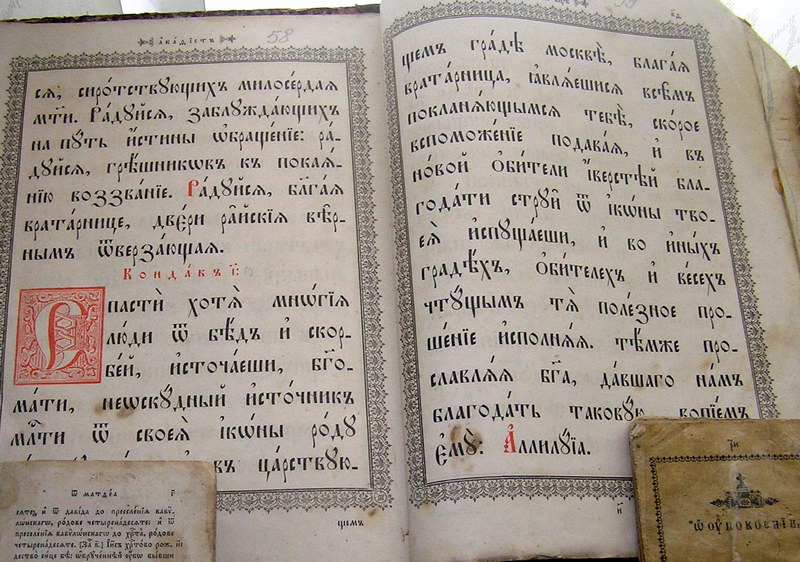 АКАѲІСТЪ
58
сѧ, сиро́тствꙋющихъ милосе́рдаѧ
мт҃и. Ра́дꙋйсѧ, заблꙋжда́ющихъ
на пꙋ́ть и҆́стины ѡ҆браще́нїе: ра́-
дꙋйсѧ, грѣ́шникѡвъ къ покаѧ́-
нїю воззва́нїе. Ра́дꙋйсѧ, бл҃га́ѧ
врата́рнице, две́ри ра́йскїѧ вѣ̑р-
нымъ ѿверза́ющаѧ.
Конда́къ і҃:
Спастѝ хотѧ̀ мнѡ́гїѧ
лю́ди ѿ бѣ́дъ и҆ скор-
бе́й, и҆сточа́еши, бг҃о-
ма́ти, неѡскꙋ́дный и҆сто́чникъ
мл҃ти ѿ своеѧ̀ і҆кѡ́ны ро́дꙋ
въ ца́рствꙋю-
щемъ
щемъ гра́дѣ москвѣ̀, благаѧ
врата́рница, ꙗ҆влѧ́ешисѧ всѣ̑мъ
поклонѧ́ющымсѧ тебѣ̀, ско́рое
вспоможе́нїе подава́ѧ, и҆ въ
но́вой ѻ҆би́тели і҆́верстѣй бла-
года́ти стрꙋи̑ ѿ і҆кѡ́ны тво-
еѧ̀ и҆спꙋща́еши, и҆ во и҆ны́хъ
градѣ́хъ, ѻ҆би́телехъ и҆ ве́сехъ
чтꙋ́щымъ тѧ̀ поле́зное про-
ше́нїе и҆сполнѧ́ѧ. тѣ́мже про-
славлѧ́ѧ бг҃а, да́вшаго на́мъ
благода́ть таковꙋ́ю вопїе́мъ
є҆мꙋ̀: А҆ллилꙋ́їа.
и
ѿ матѳеа
г҃
сѧте, и҆ ѿ даві́да до преселе́нїѧ вавѵ-
лѡ́нскагѡ, ро́дове четырена́десѧте: и҆ ѿ
преселе́нїѧ вавѵлѡ́нскагѡ до хрⷭ҇та̀, ро́дове
четырена́десѧте. [За҃ в҃.] І҆и҃съ хрⷭ҇то́во рож-
дество̀ си́це бѣ̀: ѡ҆брꙋче́ннѣй ᲂу҆́бѡ бы́вши